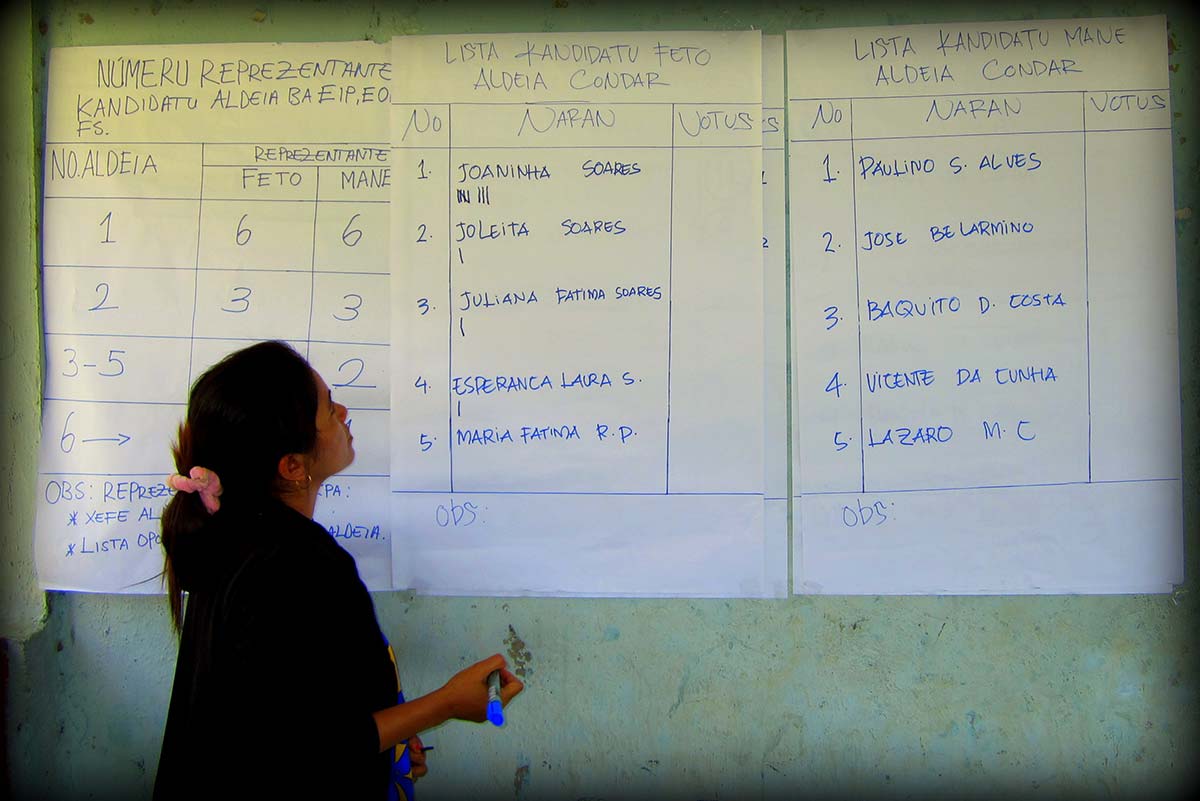 NÚMERU REPREZENTANTE
KANDIDATU ALDEIA BA EIP, EO,
FS.
NO. ALDEIA
REPREZENTANTE
FETO MANE
1 6 6
2 3 3
3-5 2
6 →
OBS:
* XEFE AL
* LISTA ALDEIA.
LISTA KANDIDATU FETO
ALDEIA CONDAR
No NARAN VOTUS
1. JOANINHA SOARES
2. JOLEITA SOARES
3. JULIANA FATIMA SOARES
4. ESPERANCA LAURA S.
5. MARIA FATIMA R.D.
OBS:
LISTA KANDIDATU MANE
ALDEIA CONDAR
No NARAN VOTUS
1. PAULINO S. ALVES
2. JOSE BELARMINO
3. BAQUITO D. COSTA
4. VICENTE DA CUNHA
5. LAZARO M. C
OBS: